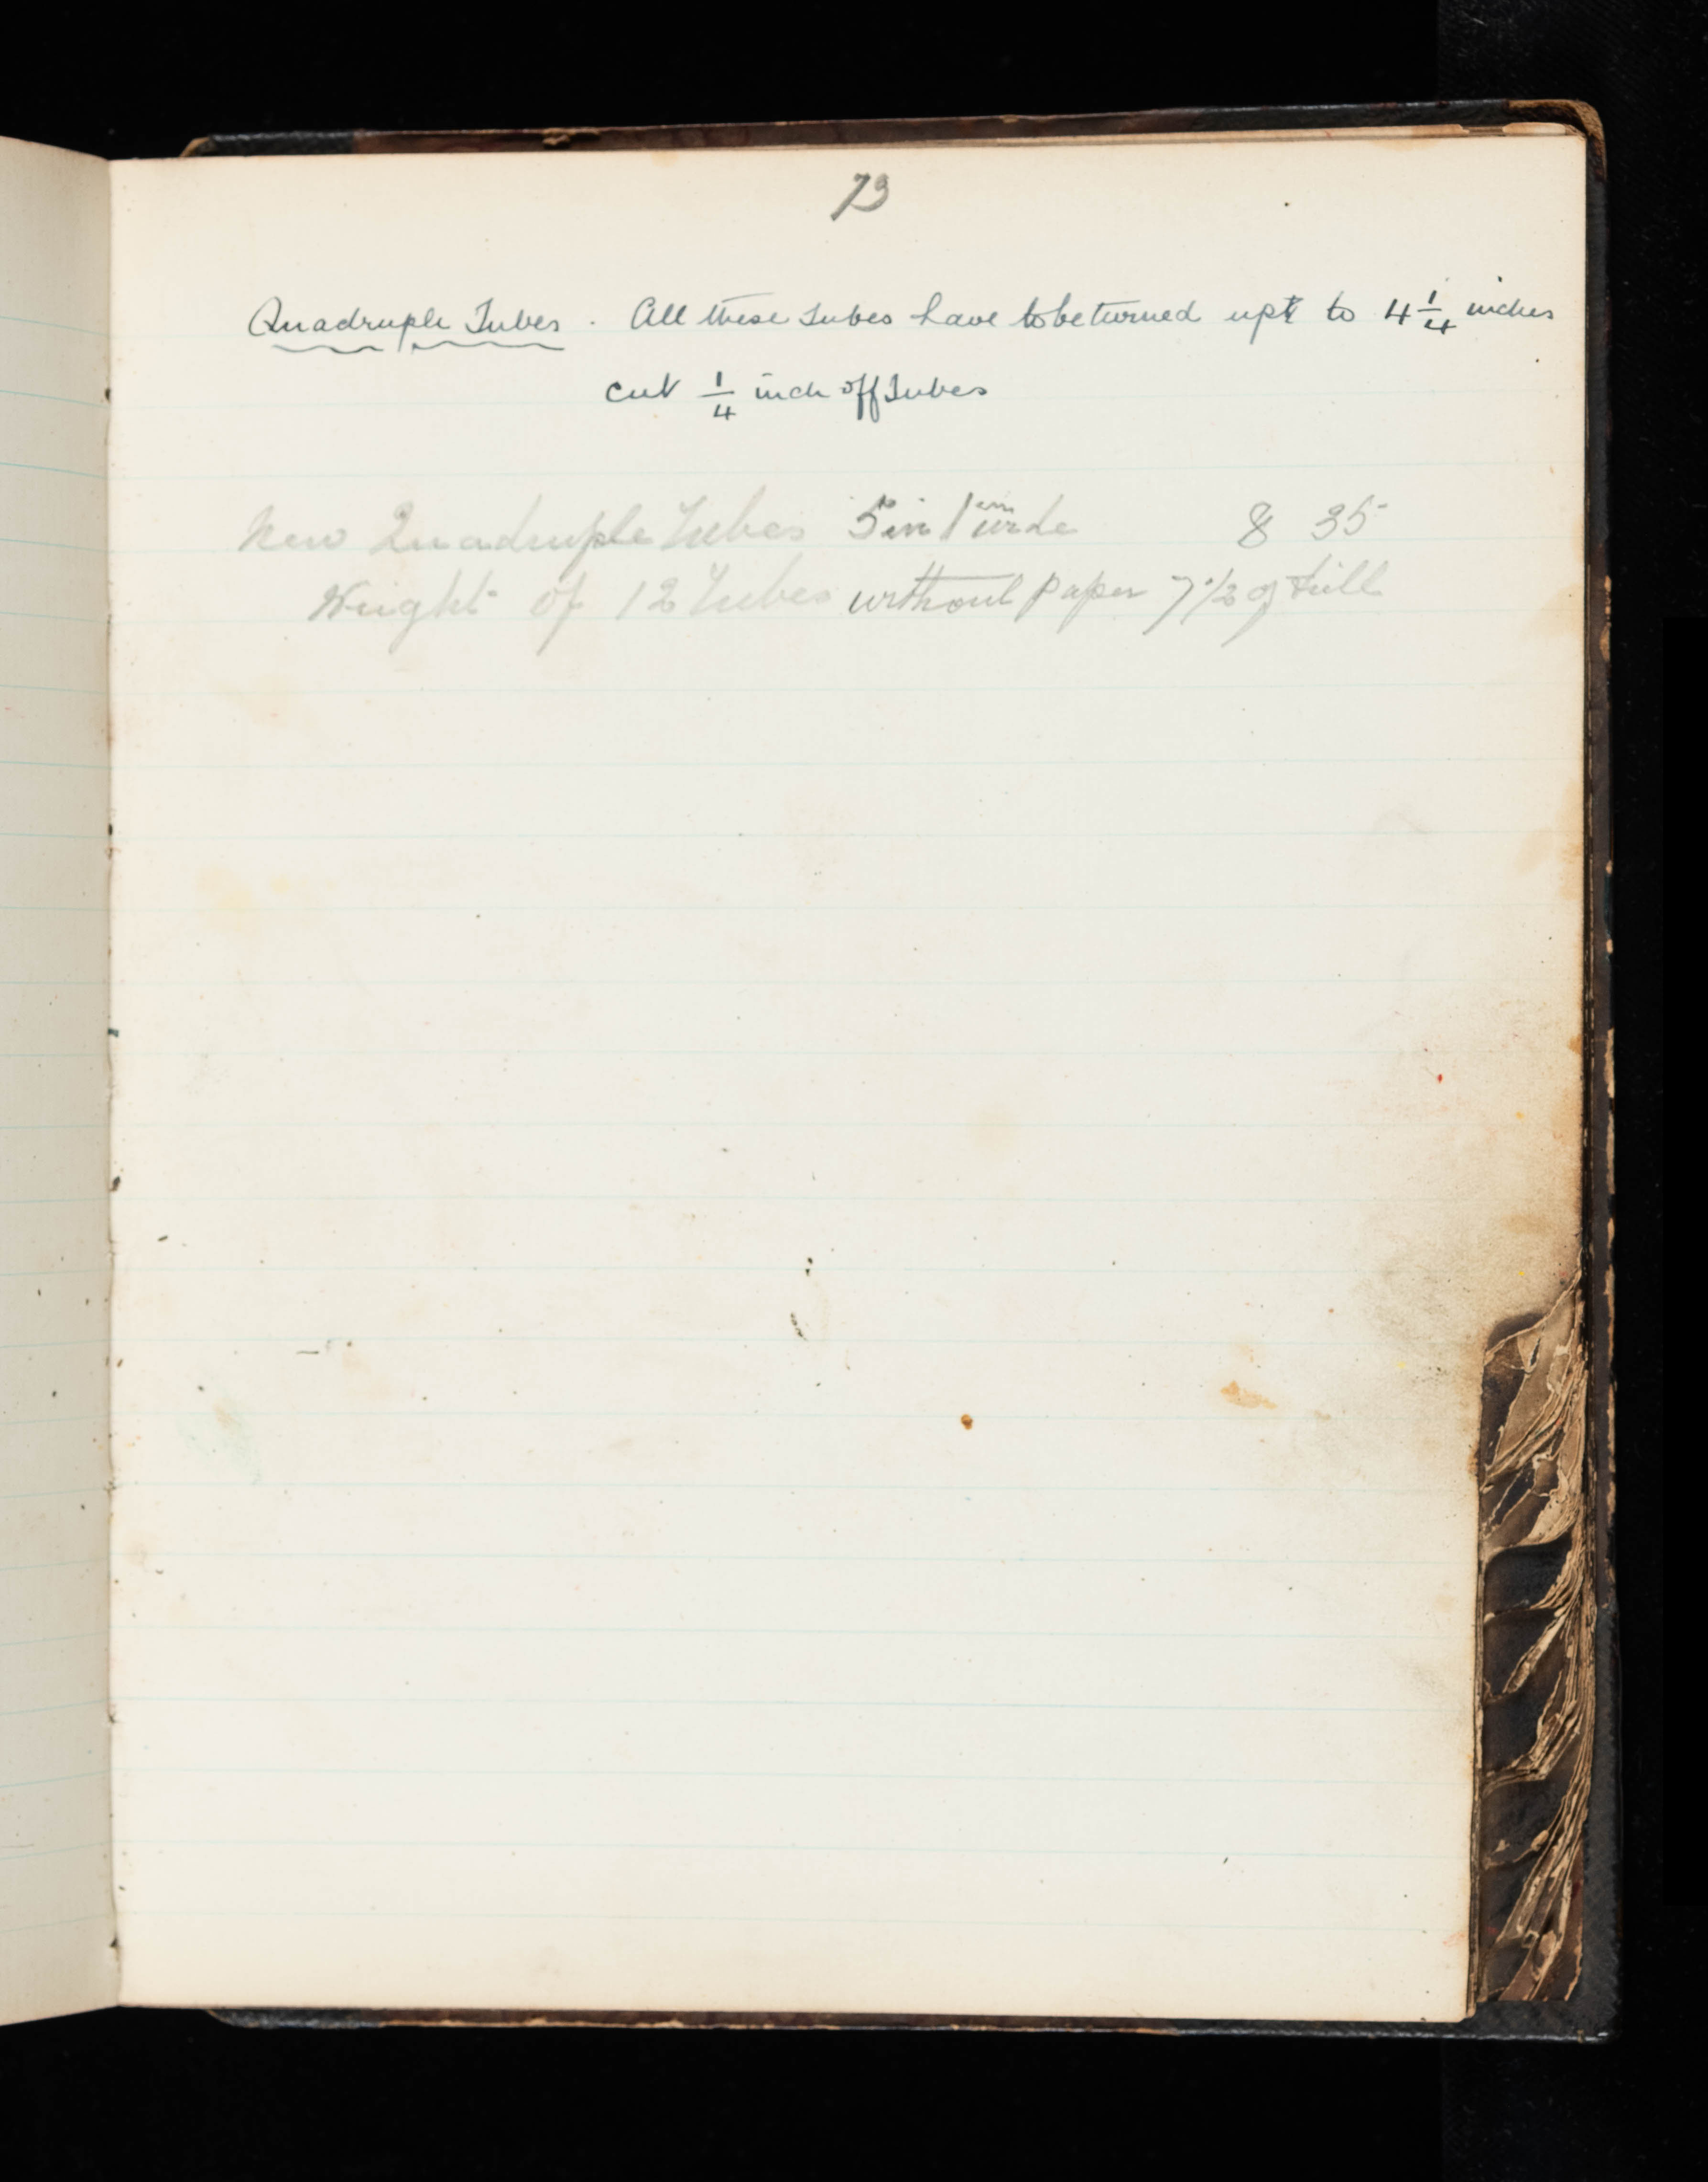 73
Quadruple Tubes. All these tubes have to be turned up to 4 1/4 inches
cut 1/4 inch off tubes
New Quadruple Tubes 5 in 1 8 35
Weight of 12 Tubes without paper 7 1/2 full